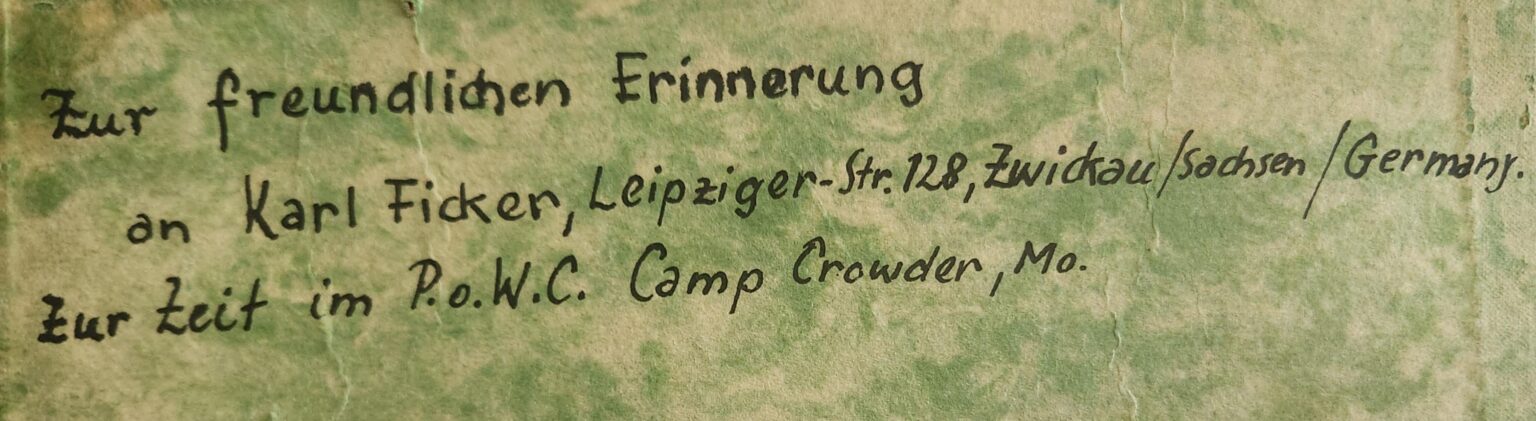 Zur freundlichen Erinnerung
an Karl Ficker, Leipziger-Str. 128, Zwickau/Sachsen/Germany.
Zur Zeit im P.o.W.C. Camp Crowder, Mo.